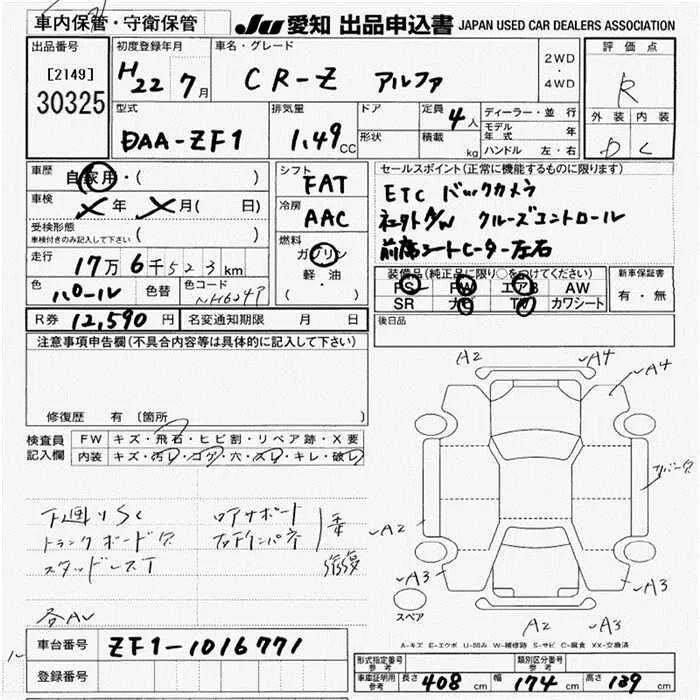 車内保管・守衛保管
JU 愛知 出品申込書 JAPAN USED CAR DEALERS ASSOCIATION
出品番号
[2149]
30325
初度登録年月
H22 7月
車名・グレード
CR-Z アルファ
2WD
・
4WD
評価点
R
外装 内装
D C
型式
DAA-ZF1
排気量
1.49 CC
ドア
形状
定員 4人
積載 kg
ディーラー・並行
モデル年式 年
ハンドル 左・右
車歴
自家用・( )
車検
年 月( 日)
受検形態
車検付きのみ記入して下さい ( )
走行
17万6千523km
色
パール
色替
色コード
NH624P
シフト
FAT
冷房
AAC
燃料
ガソリン
軽・油
( )
セールスポイント(正常に機能するものに限ります)
ETC バックカメラ
社外A/W クルーズコントロール
前席シートヒーター左右
装備品(純正品に限り○をつけてください)
PS PW エアB AW
SR ナビ TV カワシート
新車保証書
有・無
後日品
R券 12,590 円
名変通知期限 月 日
注意事項申告欄(不具合内容等は具体的に記入して下さい)
修復歴 有 〔箇所 〕
検査員
記入欄
FW キズ・飛石・ヒビ割・リペア跡・X要
内装 キズ・汚レ・コゲ・穴・スレ・キレ・破レ
下廻りSC
トランクボードクズ
スタッドレスT
ロアサポート
各AU
A2
A4
A4
A2
A3
A3
A2
A3
スペア
A-キズ E-エクボ U-凹み W-補修跡 S-サビ C-腐食 XX-交換済
車台番号 ZF1-1016771
登録番号
形式指定番号
参考
類別区分番号
参考
車庫証明用
参考
長さ 408 cm 幅 174 cm 高さ 139 cm